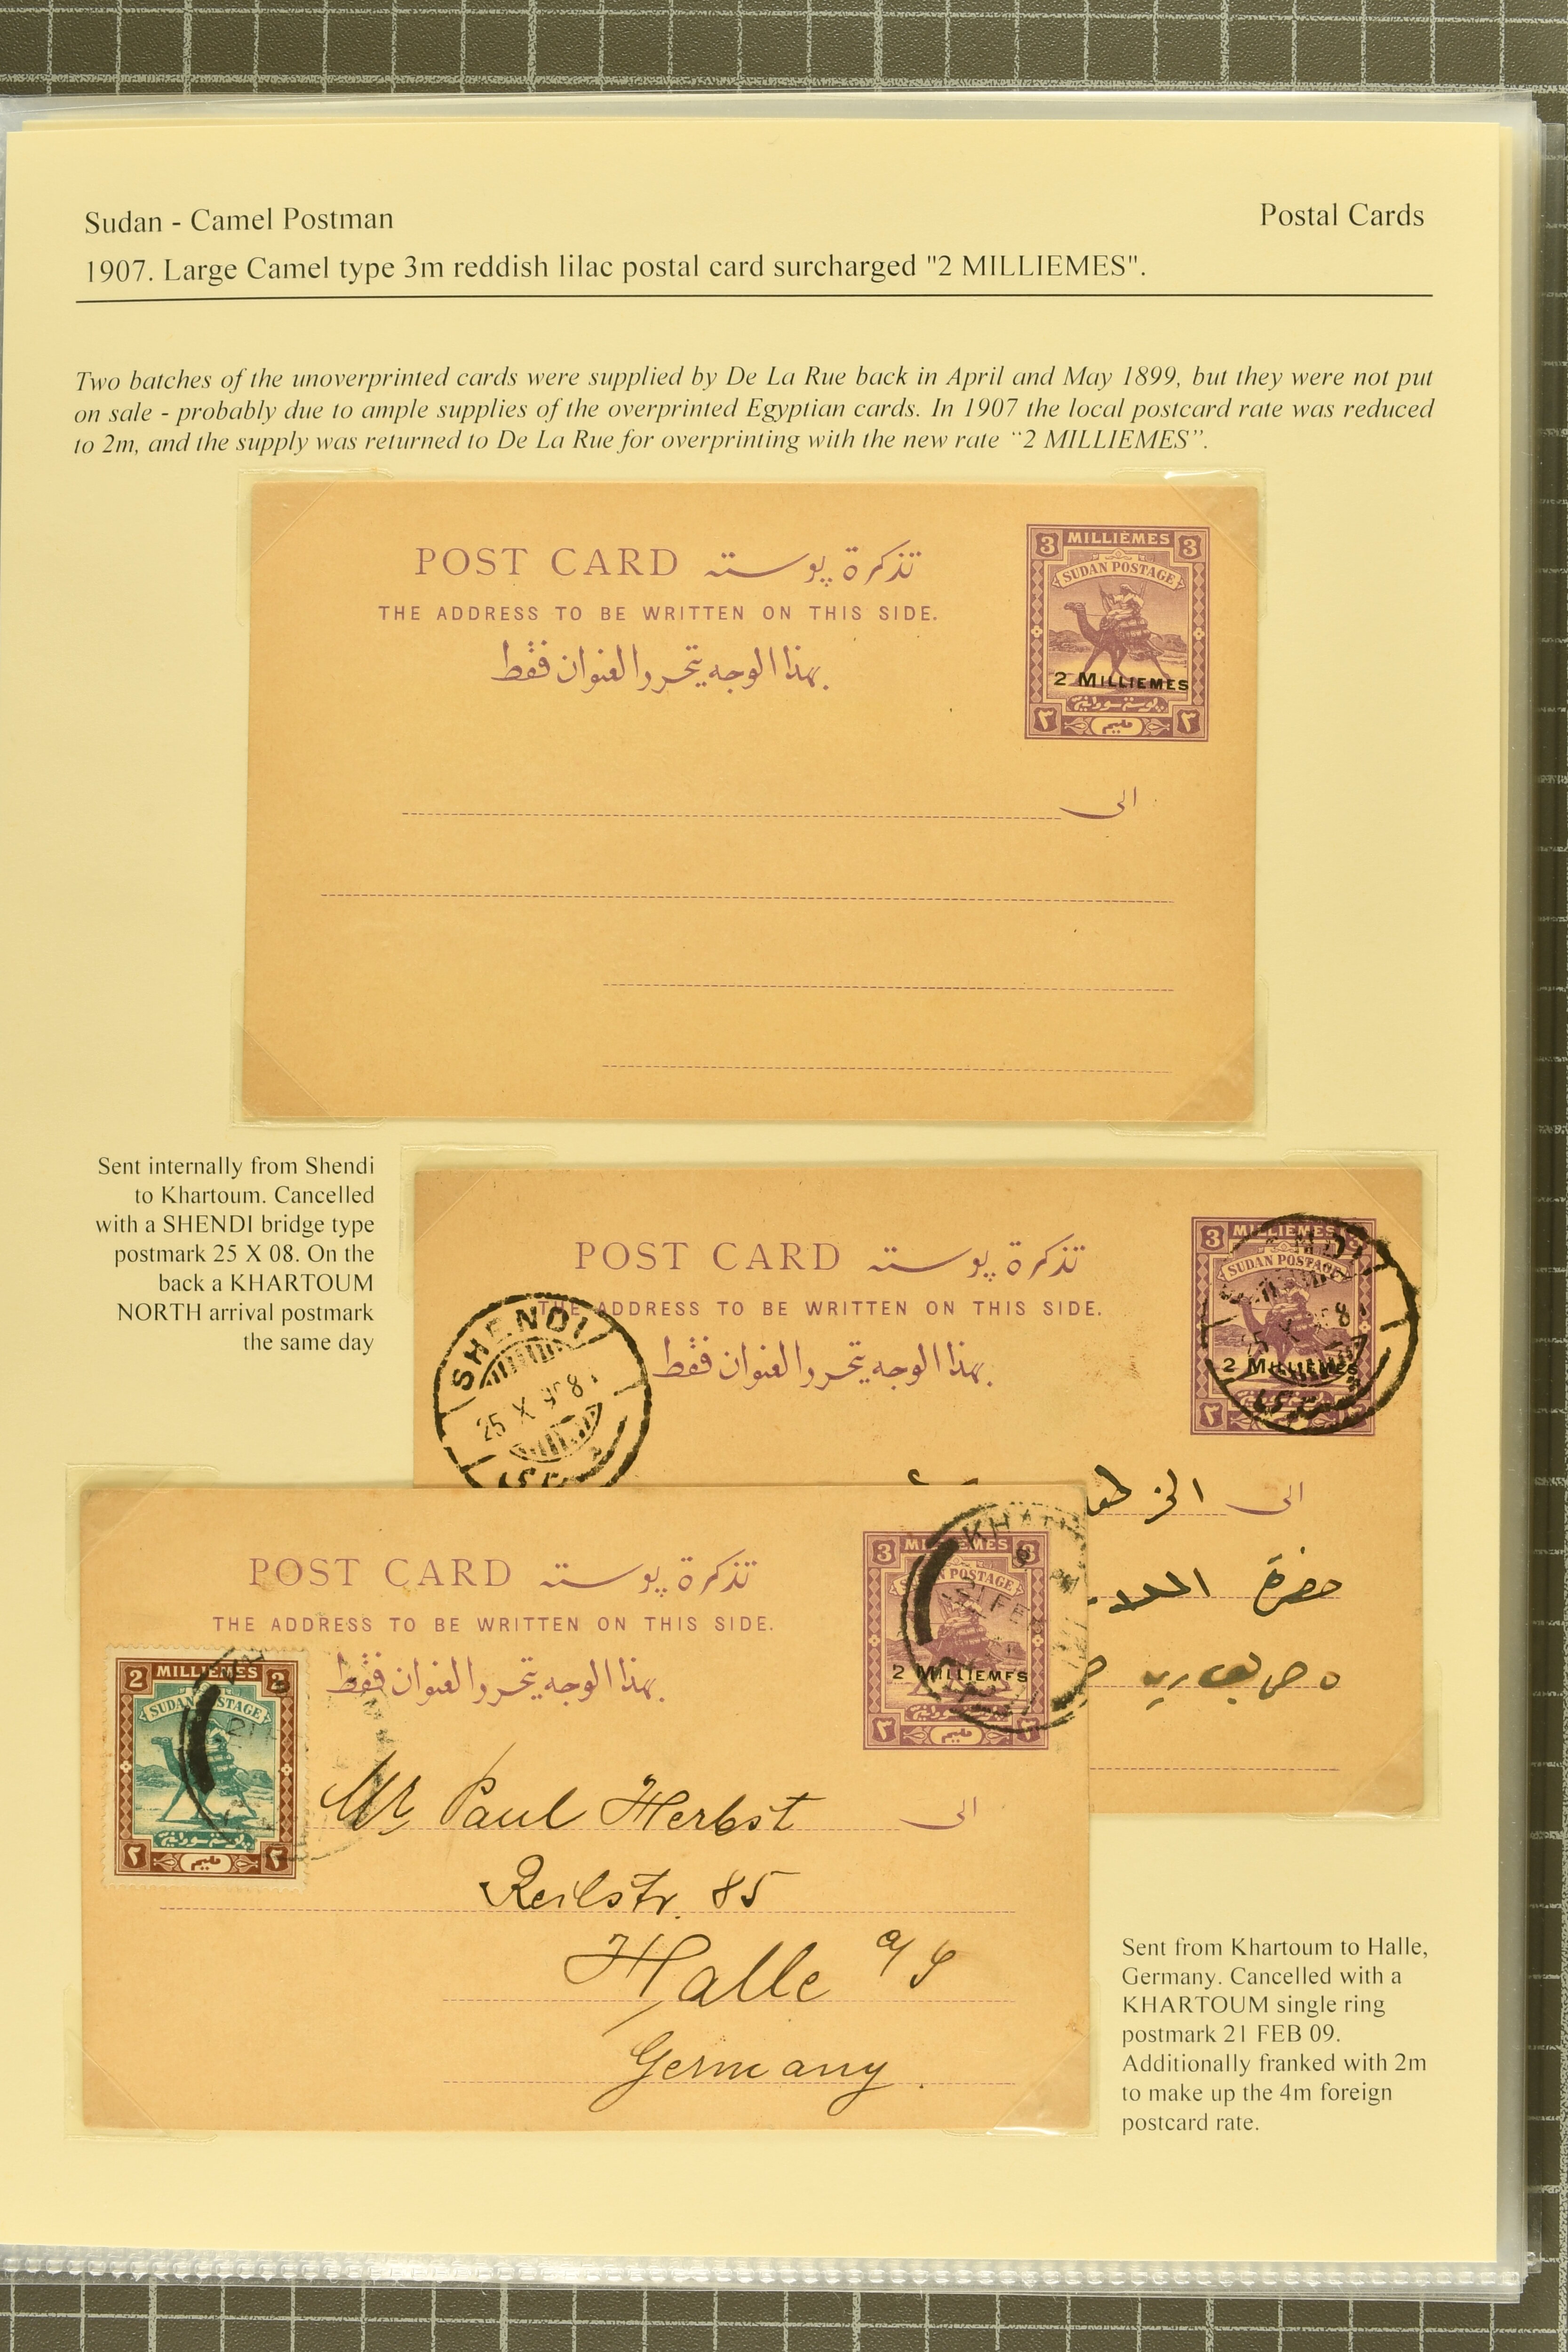 Sudan - Camel Postman
Postal Cards
1907. Large Camel type 3m reddish lilac postal card surcharged "2 MILLIEMES".
Two batches of the unoverprinted cards were supplied by De La Rue back in April and May 1899, but they were not put
on sale - probably due to ample supplies of the overprinted Egyptian cards. In 1907 the local postcard rate was reduced
to 2m, and the supply was returned to De La Rue for overprinting with the new rate “2 MILLIEMES”.
POST CARD تذكرة پوسته
THE ADDRESS TO BE WRITTEN ON THIS SIDE.
بهذا الوجه يتحرر العنوان فقط
3 MILLIEMES 3
SUDAN POSTAGE
2 MILLIEMES
پوسته سودانية
٣ مليم ٣
الى
Sent internally from Shendi
to Khartoum. Cancelled
with a SHENDI bridge type
postmark 25 X 08. On the
back a KHARTOUM
NORTH arrival postmark
the same day
POST CARD تذكرة پوسته
THE ADDRESS TO BE WRITTEN ON THIS SIDE.
بهذا الوجه يتحرر العنوان فقط
3 MILLIEMES
SUDAN POSTAGE
2 MILLIEMES
SHENDI
25 X 908
الى
حضرة
POST CARD تذكرة پوسته
THE ADDRESS TO BE WRITTEN ON THIS SIDE.
بهذا الوجه يتحرر العنوان فقط
3 MILLIEMES 3
SUDAN POSTAGE
2 MILLIEMES
پوسته سودانية
٣ مليم ٣
21 FEB
2 MILLIEMES 2
SUDAN POSTAGE
پوسته سودانية
٢ مليم ٢
الى
Mr Paul Herbst
Reilstr. 85
Halle a/S
Germany.
Sent from Khartoum to Halle,
Germany. Cancelled with a
KHARTOUM single ring
postmark 21 FEB 09.
Additionally franked with 2m
to make up the 4m foreign
postcard rate.